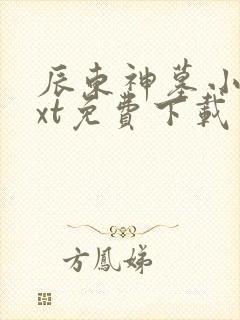 辰东神墓小
xt免費下載
方鳳娣